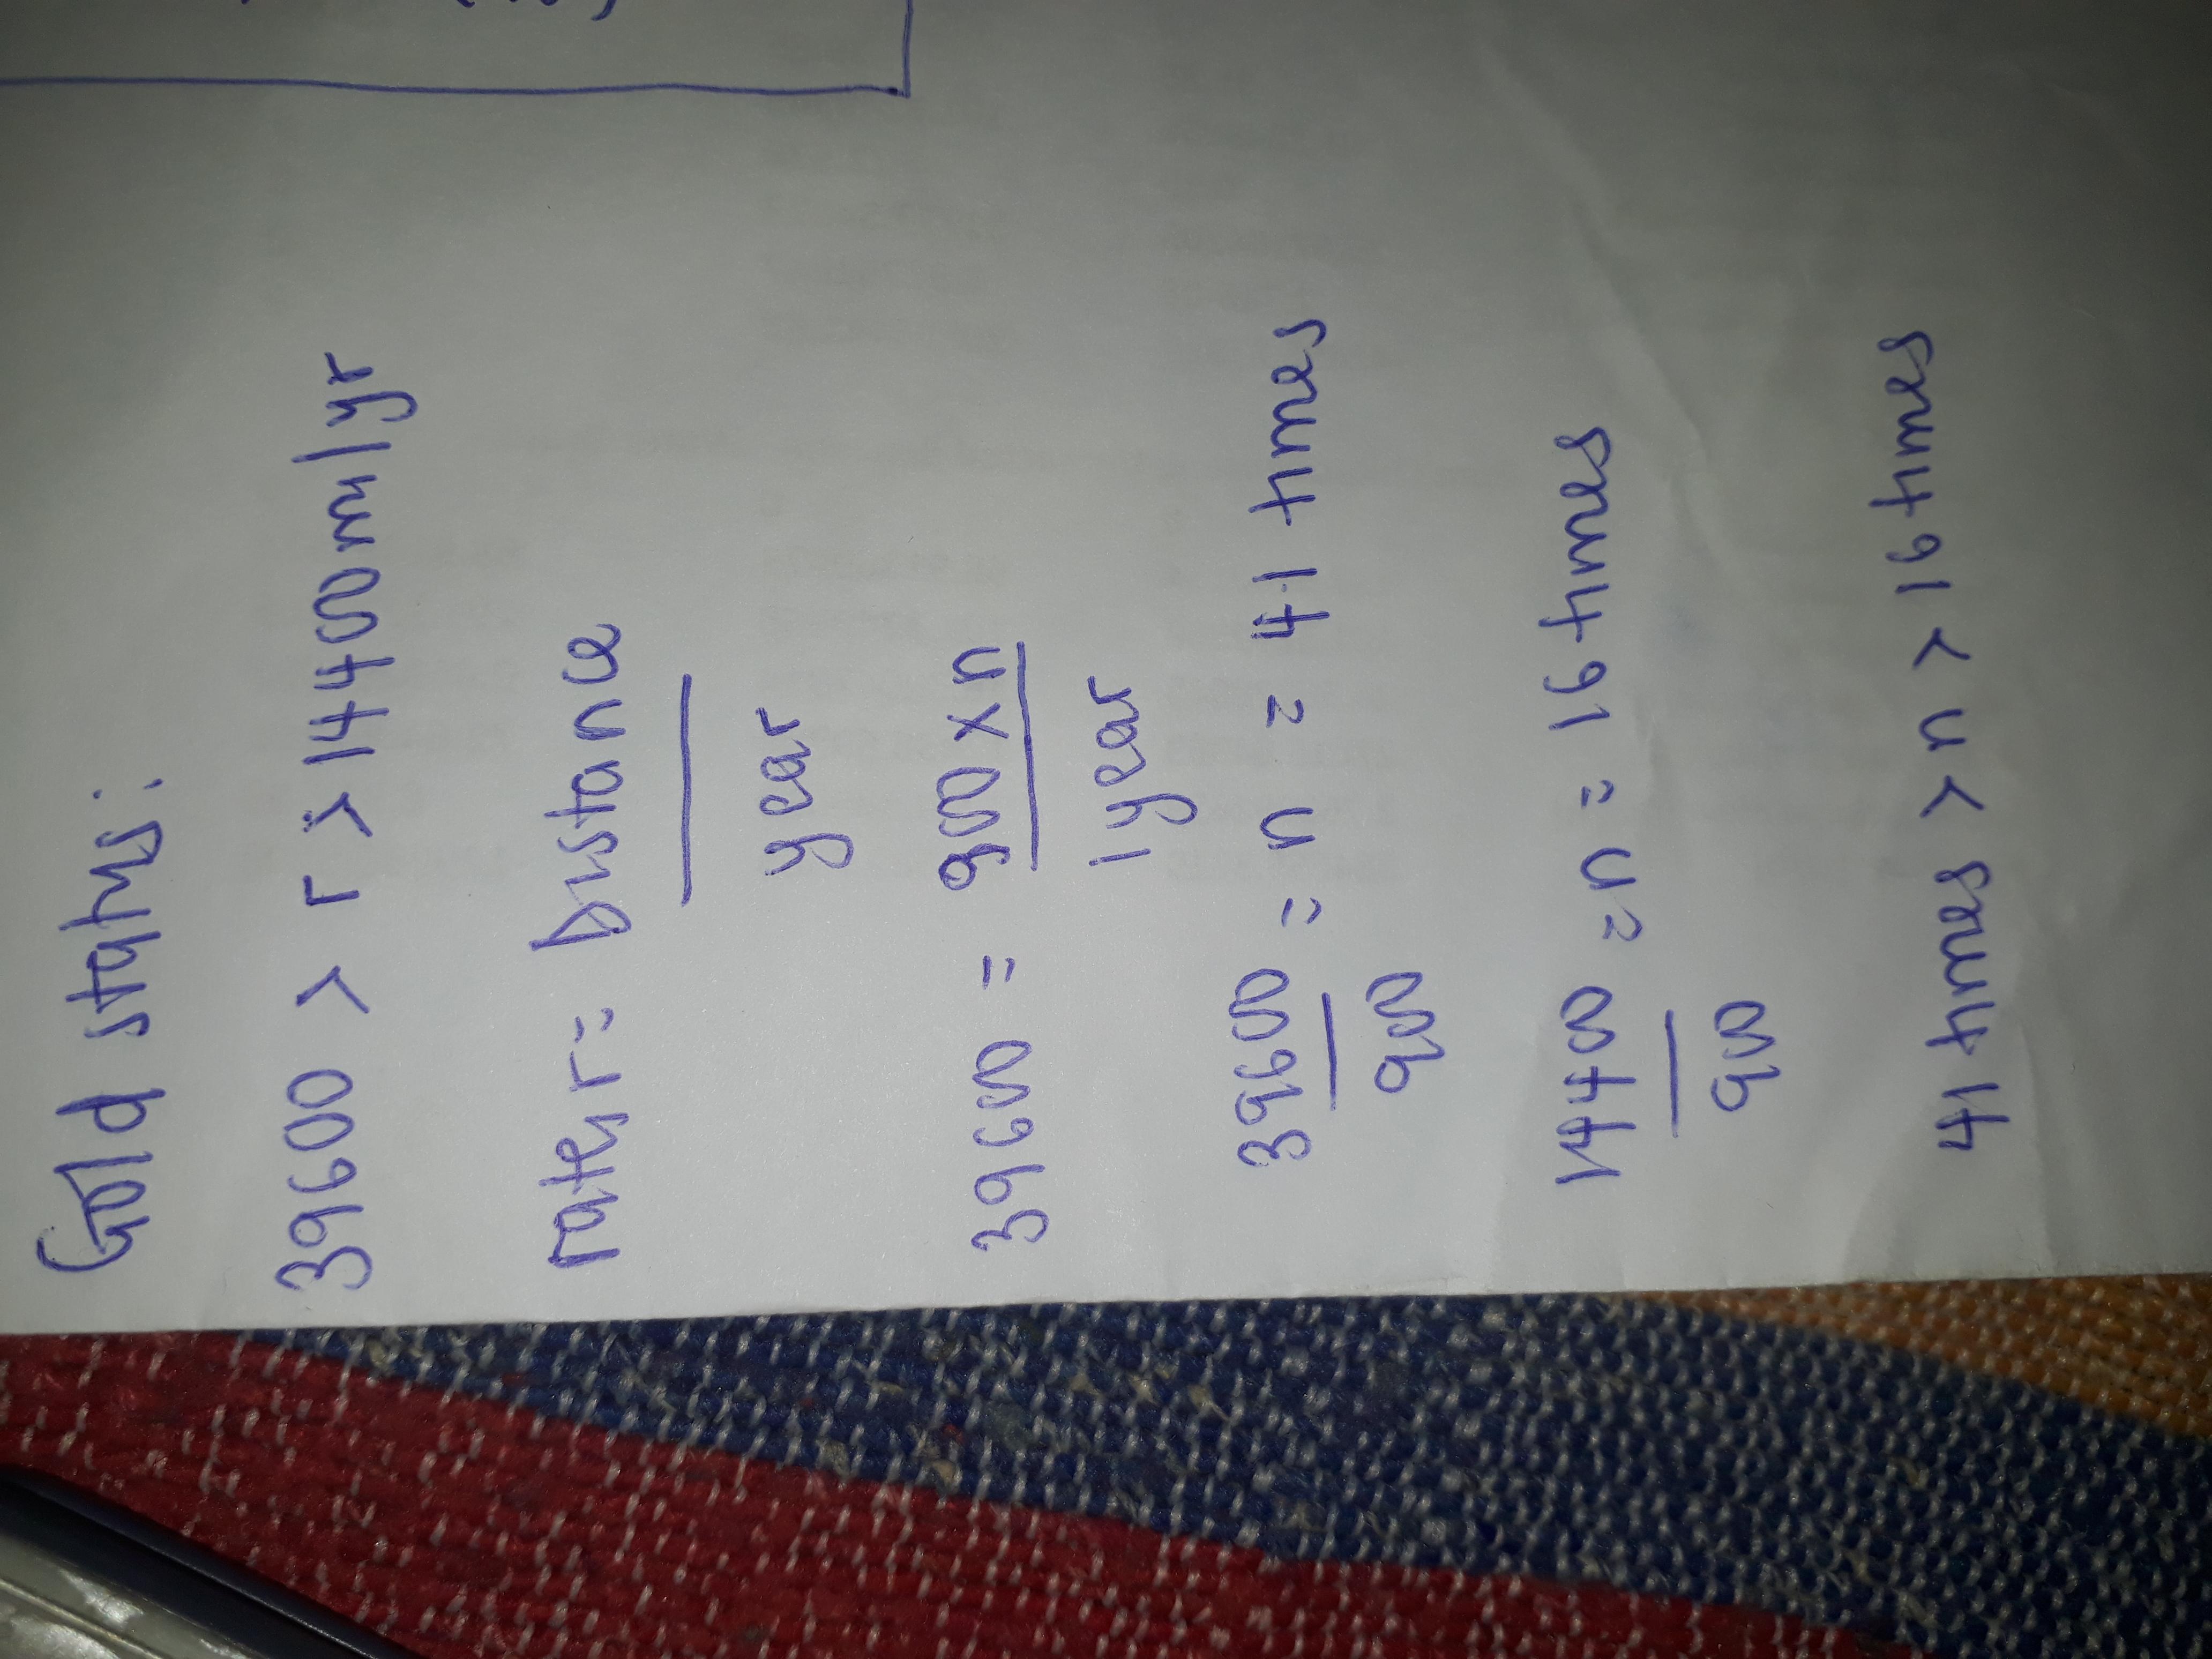 Gold status:
39600 > r > 14400mi/yr
rate, r = Distance
year
39600 = 900 x n
1 year
39600 = n = 41 times
900
14400 = n = 16 times
900
41 times > n > 16 times